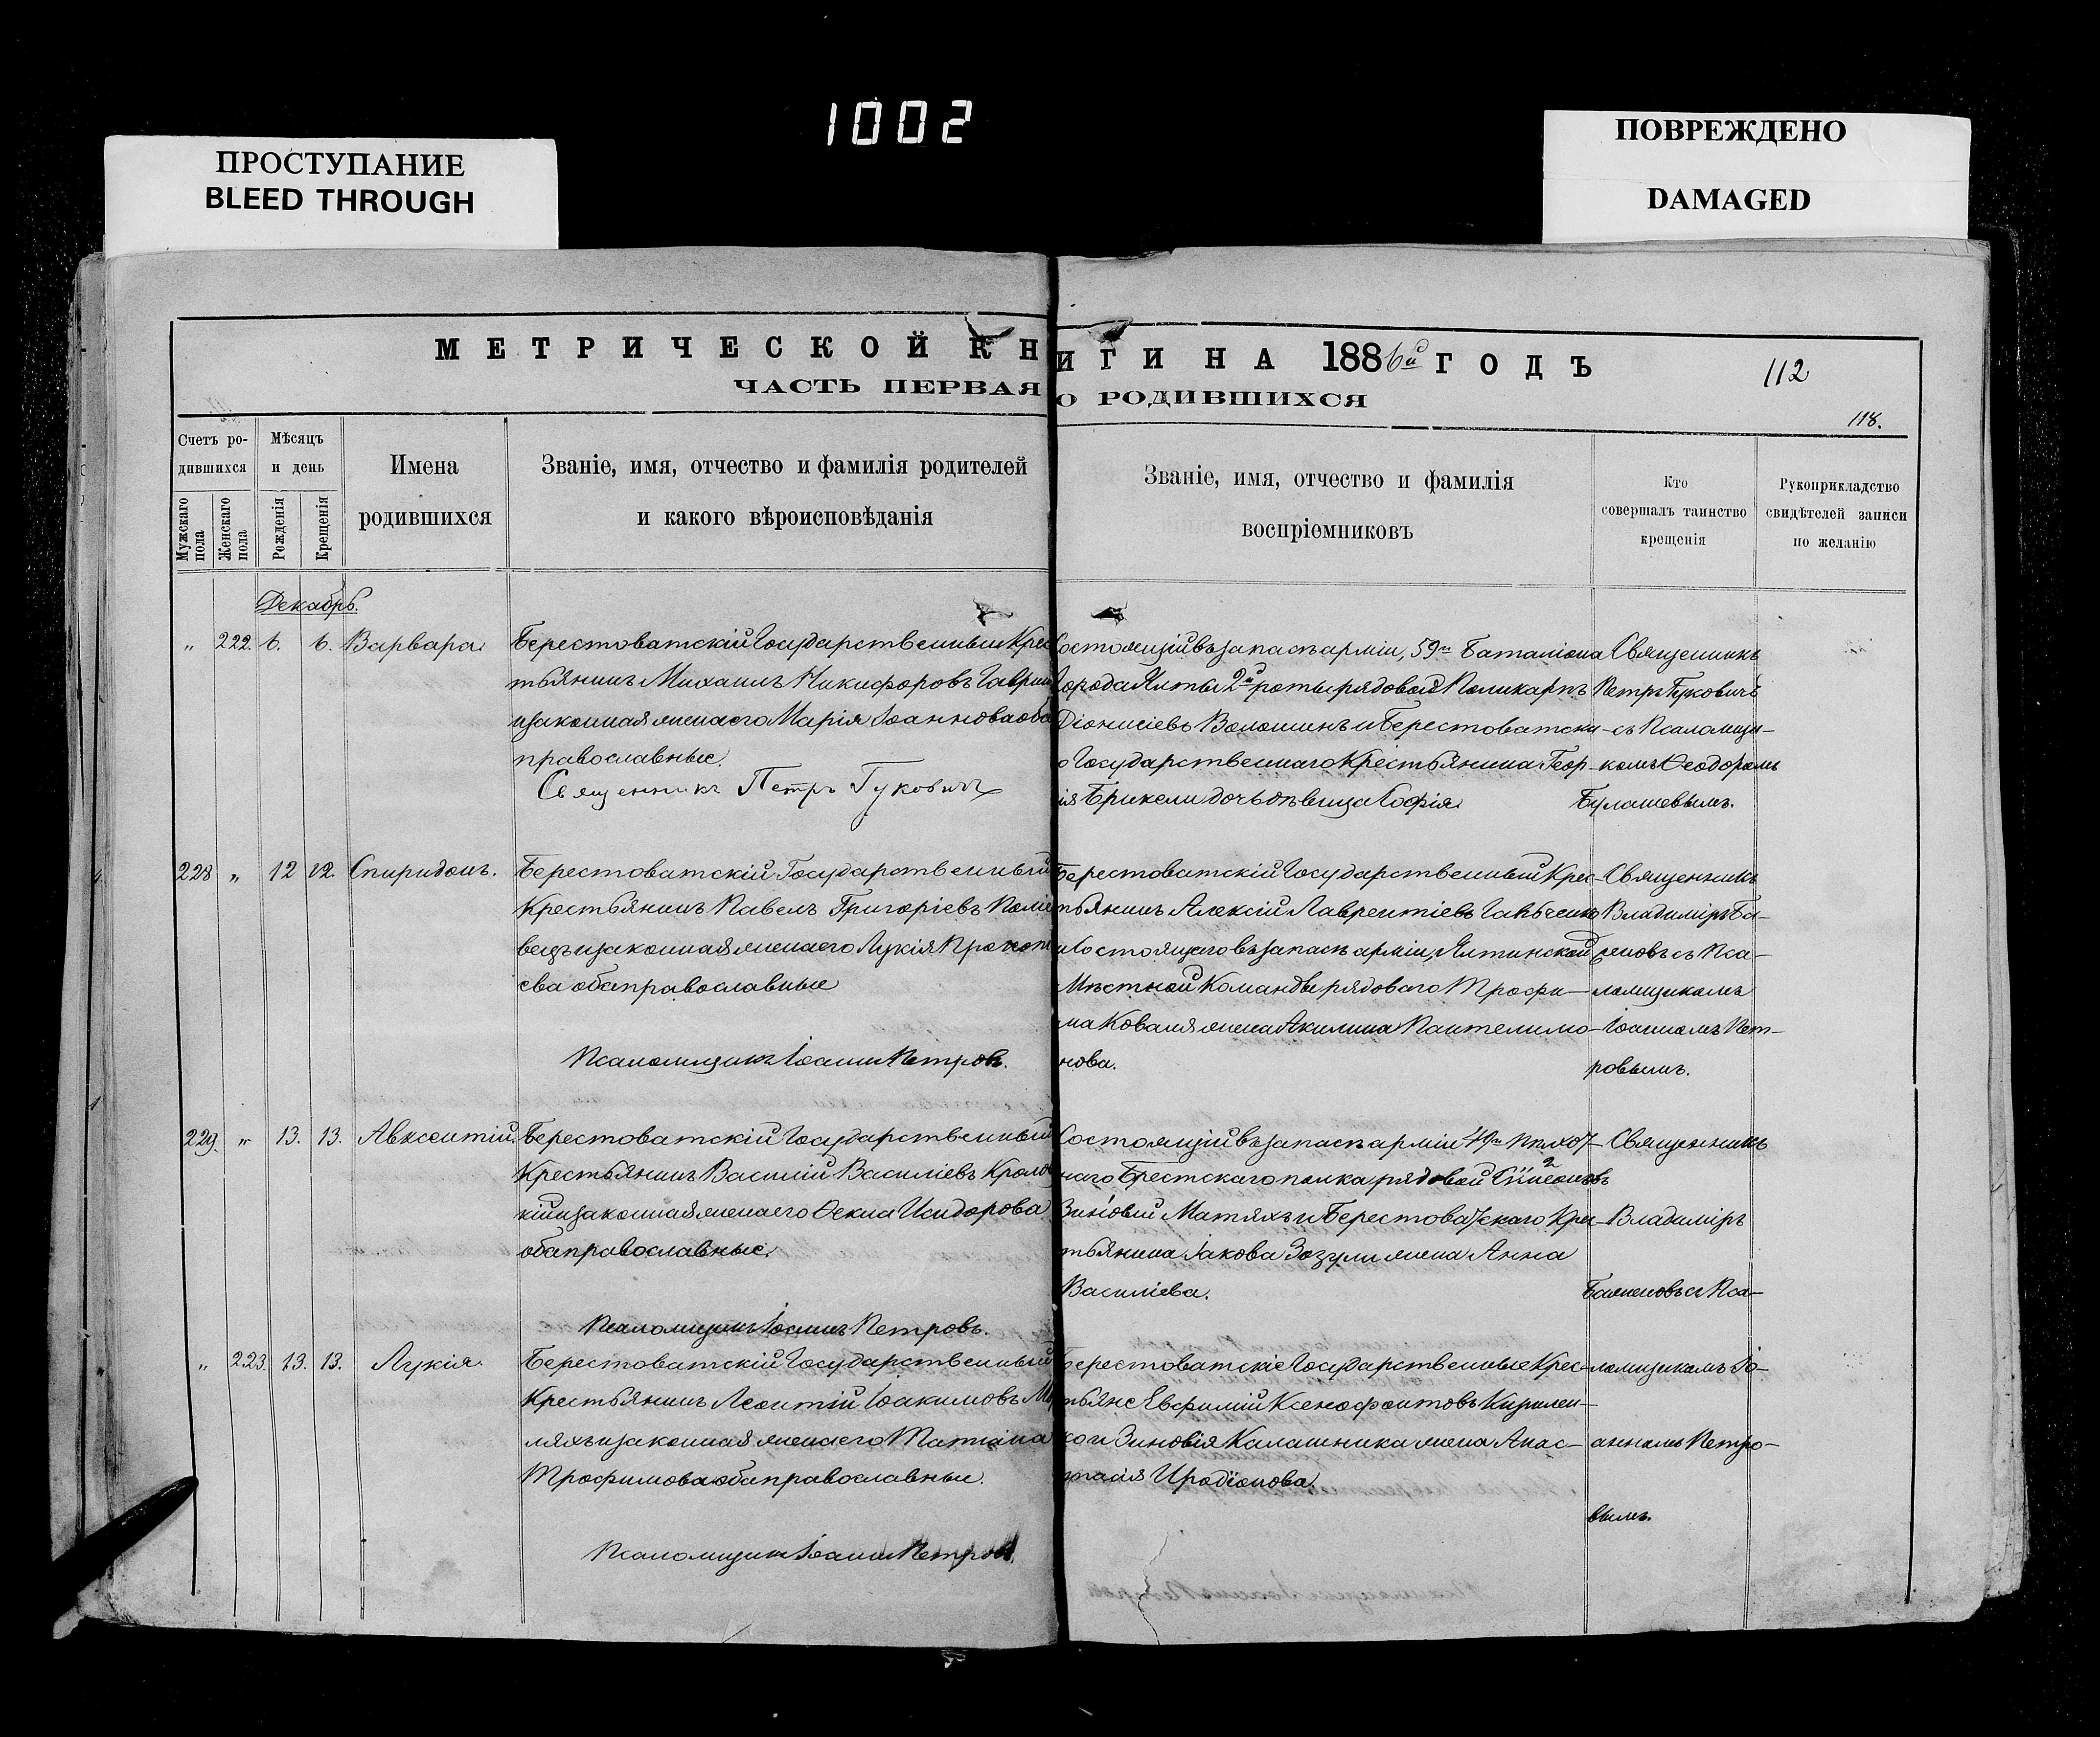 1002
ПРОСТУПАНИЕ
BLEED THROUGH
ПОВРЕЖДЕНО
DAMAGED
МЕТРИЧЕСКОЙ КНИГИ НА 1886й ГОДЪ
112
ЧАСТЬ ПЕРВАЯ О РОДИВШИХСЯ
118.
Счетъ ро-
дившихся
Мужскаго пола
Женскаго пола
Мѣсяцъ
и день
Рожденія
Крещенія
Имена
родившихся
Званіе, имя, отчество и фамилія родителей
и какого вѣроисповѣданія
Званіе, имя, отчество и фамилія
воспріемниковъ
Кто
совершалъ таинство
крещенія
Рукоприкладство
свидѣтелей записи
по желанію
Декабрь.
" 222. 6. 6. Варвара
Берестоватскій Государственный Крес
тьянинъ Михаилъ Никифоровъ Гаври
и законная жена его Марія Іоаннова оба
православные.
Священникъ Петръ Гуковичъ
Состоящій въ запасѣ арміи, 59го Баталіона
города Ялты 2й роты рядовой Поликарпъ
Діонисіевъ Волошинъ и Берестоватска-
го Государственнаго Крестьянина Геор-
гія Брикели дочь дѣвица Софія
Священникъ
Петръ Гуковичъ
съ Псаломщи-
комъ Ѳеодоромъ
Булашевымъ.
228 " 12 12. Спиридонъ.
Берестоватскій Государственный
Крестьянинъ Павелъ Григоріевъ Поліе
вецъ и законная жена его Лукія Прокопі
ева оба православные
Псаломщикъ Іоаннъ Петровъ.
Берестоватскій Государственный Крес-
тьянинъ Алексій Лаврентіевъ
и Состоящаго въ запасѣ арміи, Ялтинской
Мѣстной Команды рядоваго Трофи-
ма Коваля жена Акилина Пантелимо-
нова.
Священникъ
Владиміръ Ба-
женовъ съ Пса-
ломщикомъ
Іоанномъ Пет-
ровымъ.
229. " 13. 13. Авксентій.
Берестоватскій Государственный
Крестьянинъ Василій Василіевъ Крапов
кій и законная жена его Ѳекла Исидорова
оба православные.
Псаломщикъ Іоаннъ Петровъ.
Состоящій въ запасѣ арміи 49го пѣхот-
наго Брестскаго полка рядовой
Зиновій Матяхъ и Берестоватскаго Крес-
тьянина Іакова Зозули жена Анна
Василіева.
Священникъ
Владиміръ
Баженовъ съ Пса-
" 223. 13. 13. Лукія.
Берестоватскій Государственный
Крестьянинъ Леонтій Іоакимовъ
ляхъ и законная жена его Татіана
Трофимова оба православные.
Псаломщикъ Іоаннъ Петровъ.
Берестоватскіе Государственные Крес-
тьяне Евфимій Ксенофонтовъ Кирилен-
ко и Зиновія Калашника жена Анас-
тасія Иродіонова.
ломщикомъ Іо-
анномъ Петро-
вымъ.